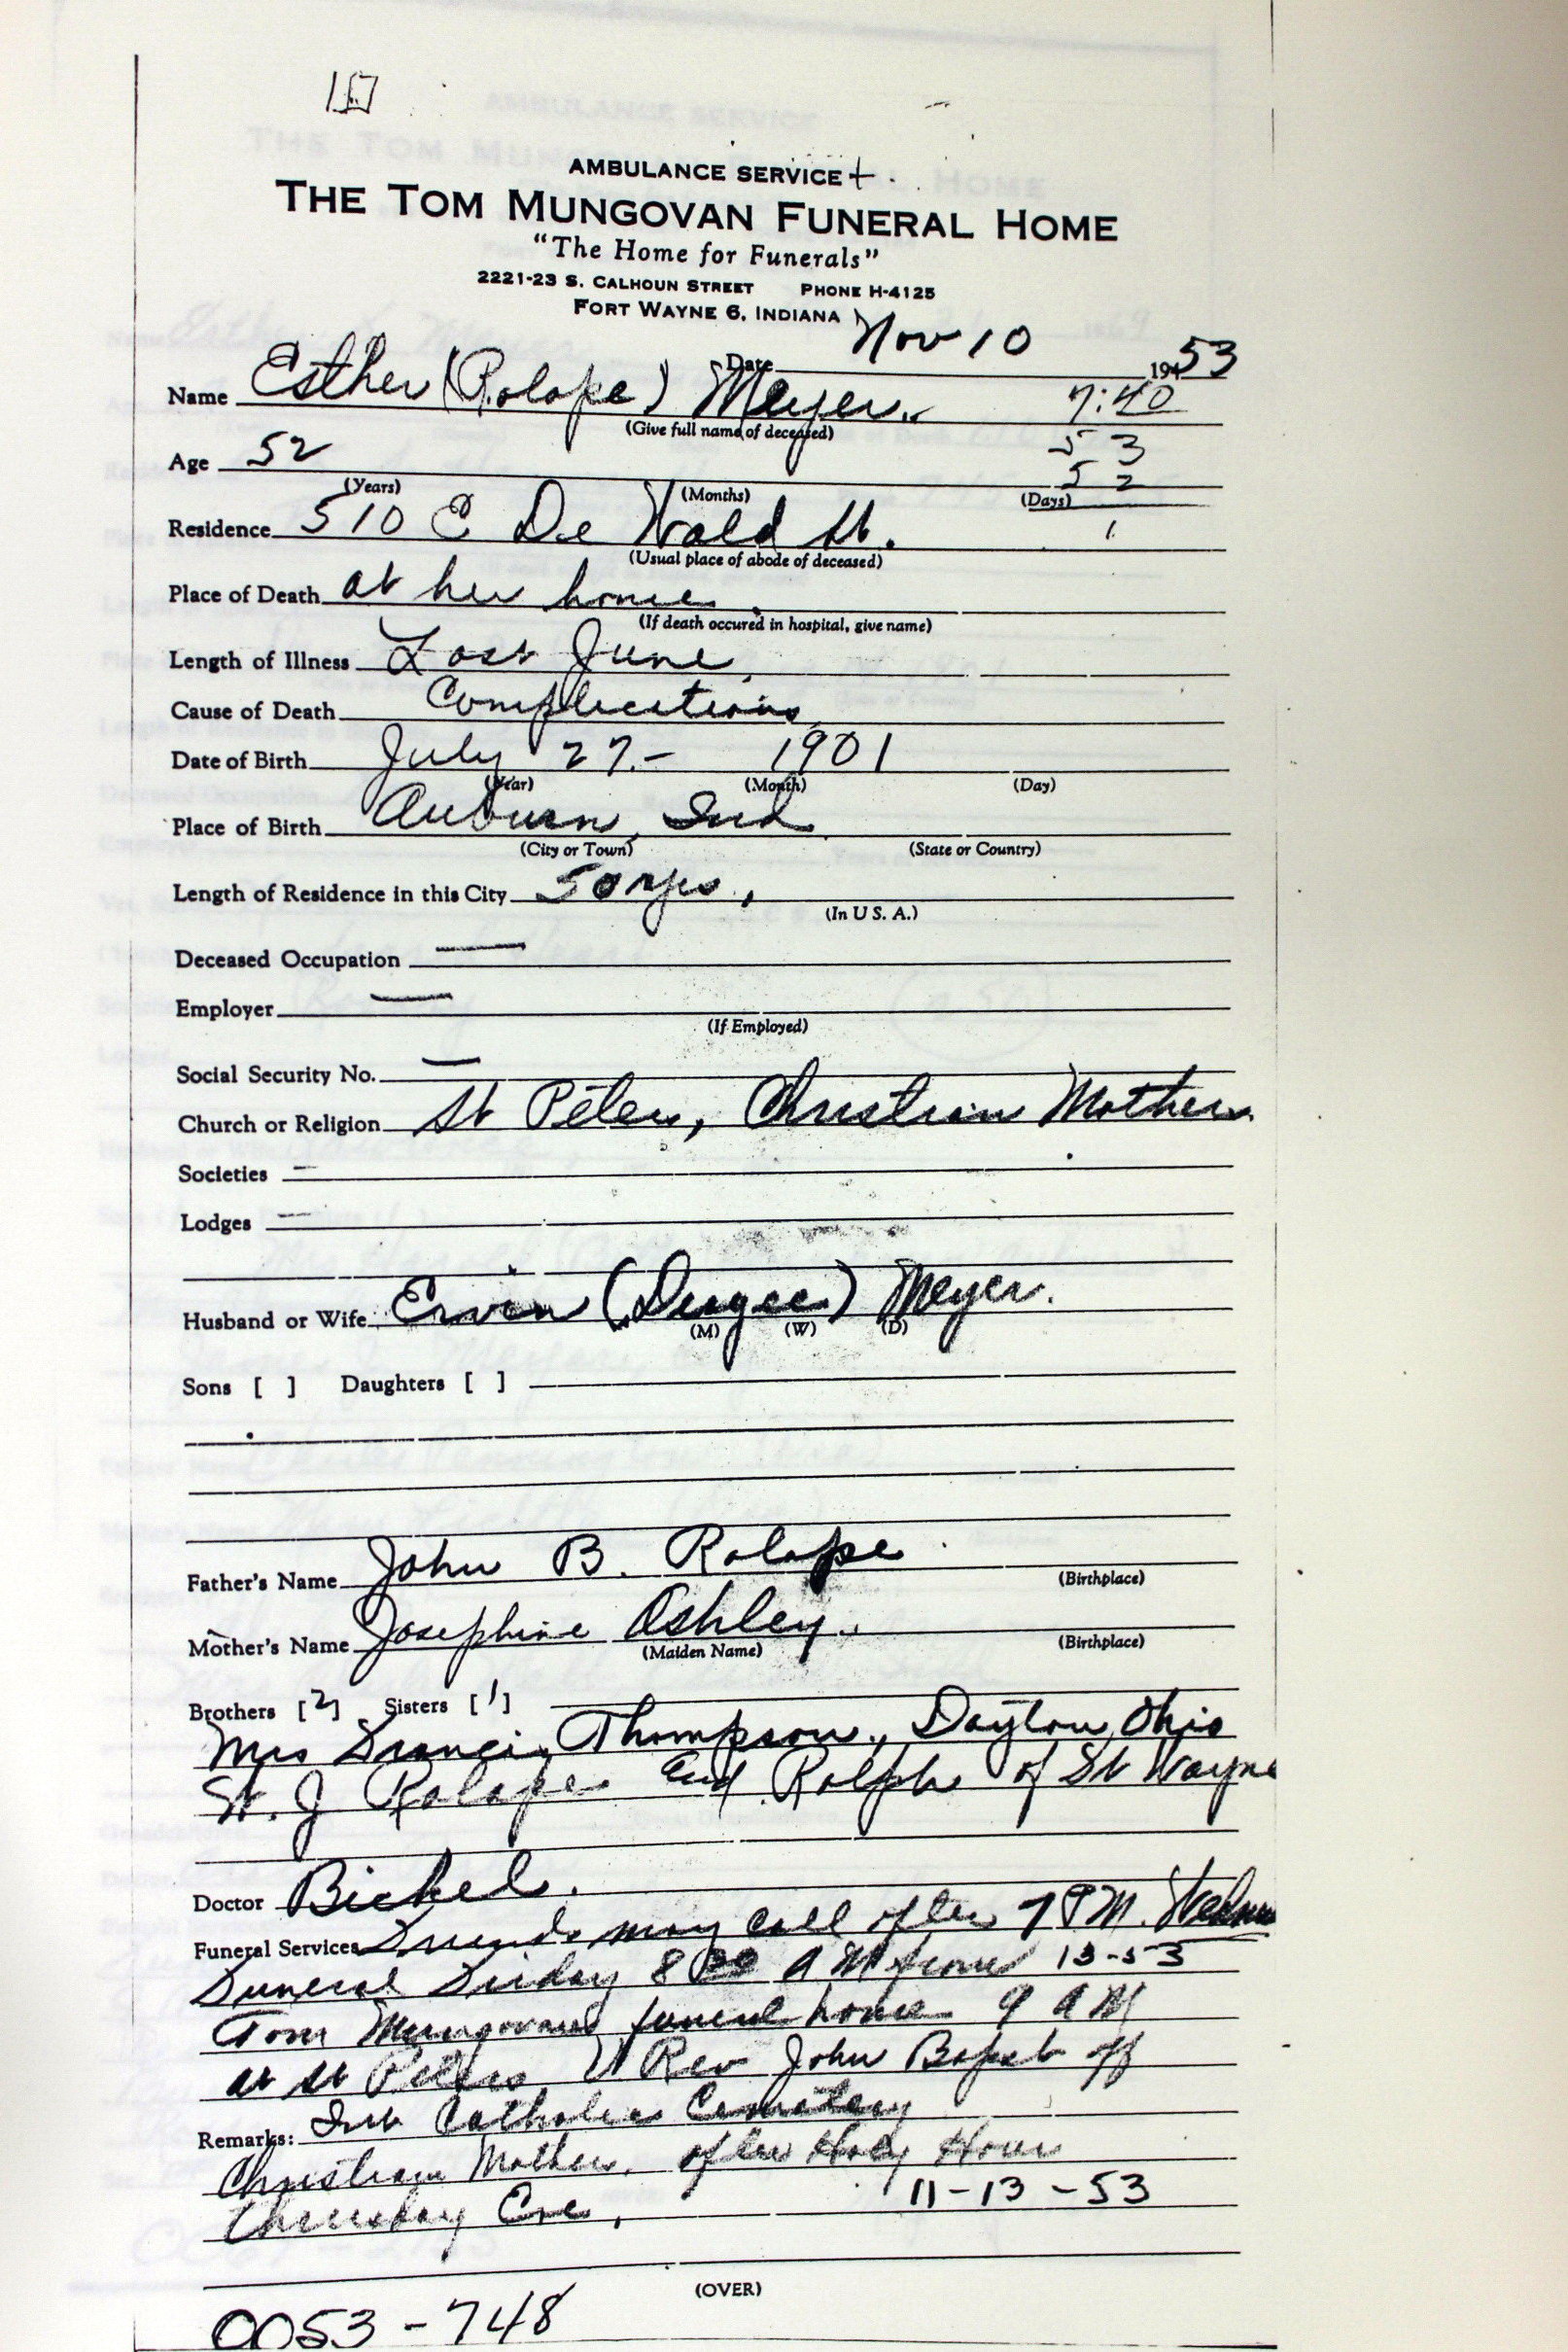 AMBULANCE SERVICE
THE TOM MUNGOVAN FUNERAL HOME
"The Home for Funerals"
2221-23 S. CALHOUN STREET PHONE H-4125
FORT WAYNE 6, INDIANA
Date Nov 10 19453
Name Esther (Rolape) Meyer. 7:40
(Give full name of deceased)
53
Age 52 52
(Years) (Months) (Days)
Residence 510 E De Wald St. 1
(Usual place of abode of deceased)
Place of Death at her home.
(If death occured in hospital, give name)
Length of Illness Last June,
Cause of Death Complications
Date of Birth July 27.- 1901
(Year) (Month) (Day)
Place of Birth Auburn, Ind
(City or Town) (State or Country)
Length of Residence in this City 50 yrs,
(In U S. A.)
Deceased Occupation —
Employer —
(If Employed)
Social Security No. —
Church or Religion St Peters, Christian Mothers
Societies —
Lodges —
Husband or Wife Ervin Meyer.
(M) (W) (D)
Sons [ ] Daughters [ ]
Father's Name John B. Rolape
(Birthplace)
Mother's Name Josephine Ashley.
(Maiden Name) (Birthplace)
Brothers [2] Sisters [1]
Mrs Francis Thompson, Dayton, Ohio
J Rolape and Ralph of Ft Wayne
Doctor Bickel.
Funeral Services Friends may call after 7 PM.
Funeral Friday 8 30 A M from 13-53
Tom Mungovan funeral home 9 A M
at St Peters Rev John Bapst off
Remarks: Int Catholic Cemetery
Christian Mothers. after Holy Hour
Thursday Eve, 11-13-53
(OVER)
0053-748